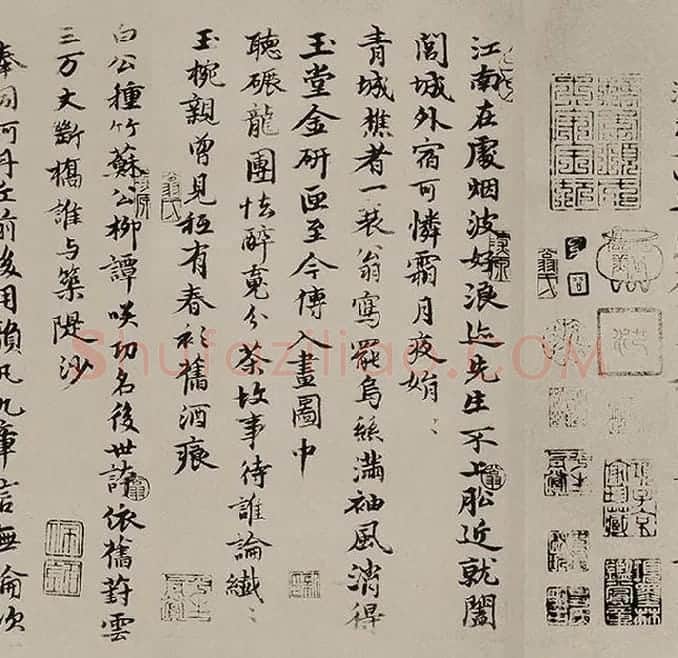 江南在處烟波好浪迹先生不上船近就闔
閭城外宿可憐霜月夜娟〻
青城樵者一蓑翁寫罷烏絲滿袖風消得
玉堂金研匣至今傳入畫圖中
聽碾龍團怯醉魂分茶故事待誰論纖〻
玉椀親曾見秪有春衫舊酒痕
白公種竹蘇公柳譚咲功名後世誇依舊葑雲
三万丈斷橋誰与築隄沙
奉同柯丹丘前後用韻凡九章言無倫次
Shufaziliao.COM